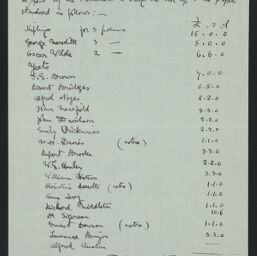 standard as follows :—
£ . s . d
Kipling for 3 poems 15.0.0
George Meredith 3 — 5.0.0
Oscar Wilde 2 — 6.6.0
Yeats
T.E. Brown 7.0.0
Robert Bridges 5.5.0
Alfred Noyes 2.2.0
John Masefield 3.3.0
John Davidson 2.2.0
Emily Dickinson 2.2.0
W.H. Davies 1.1.0
Rupert Brooke 3.3.0
W.E. Henley 2.2.0
William Watson 3.3.0
Christina Rossetti 1.1.0
Amy Levy 1.1.0
Richard Middleton 1.1.0
Dr Sigerson 10.6
Ernest Dowson 1.1.0
Laurence Binyon 3.3.0
Alfred Austin